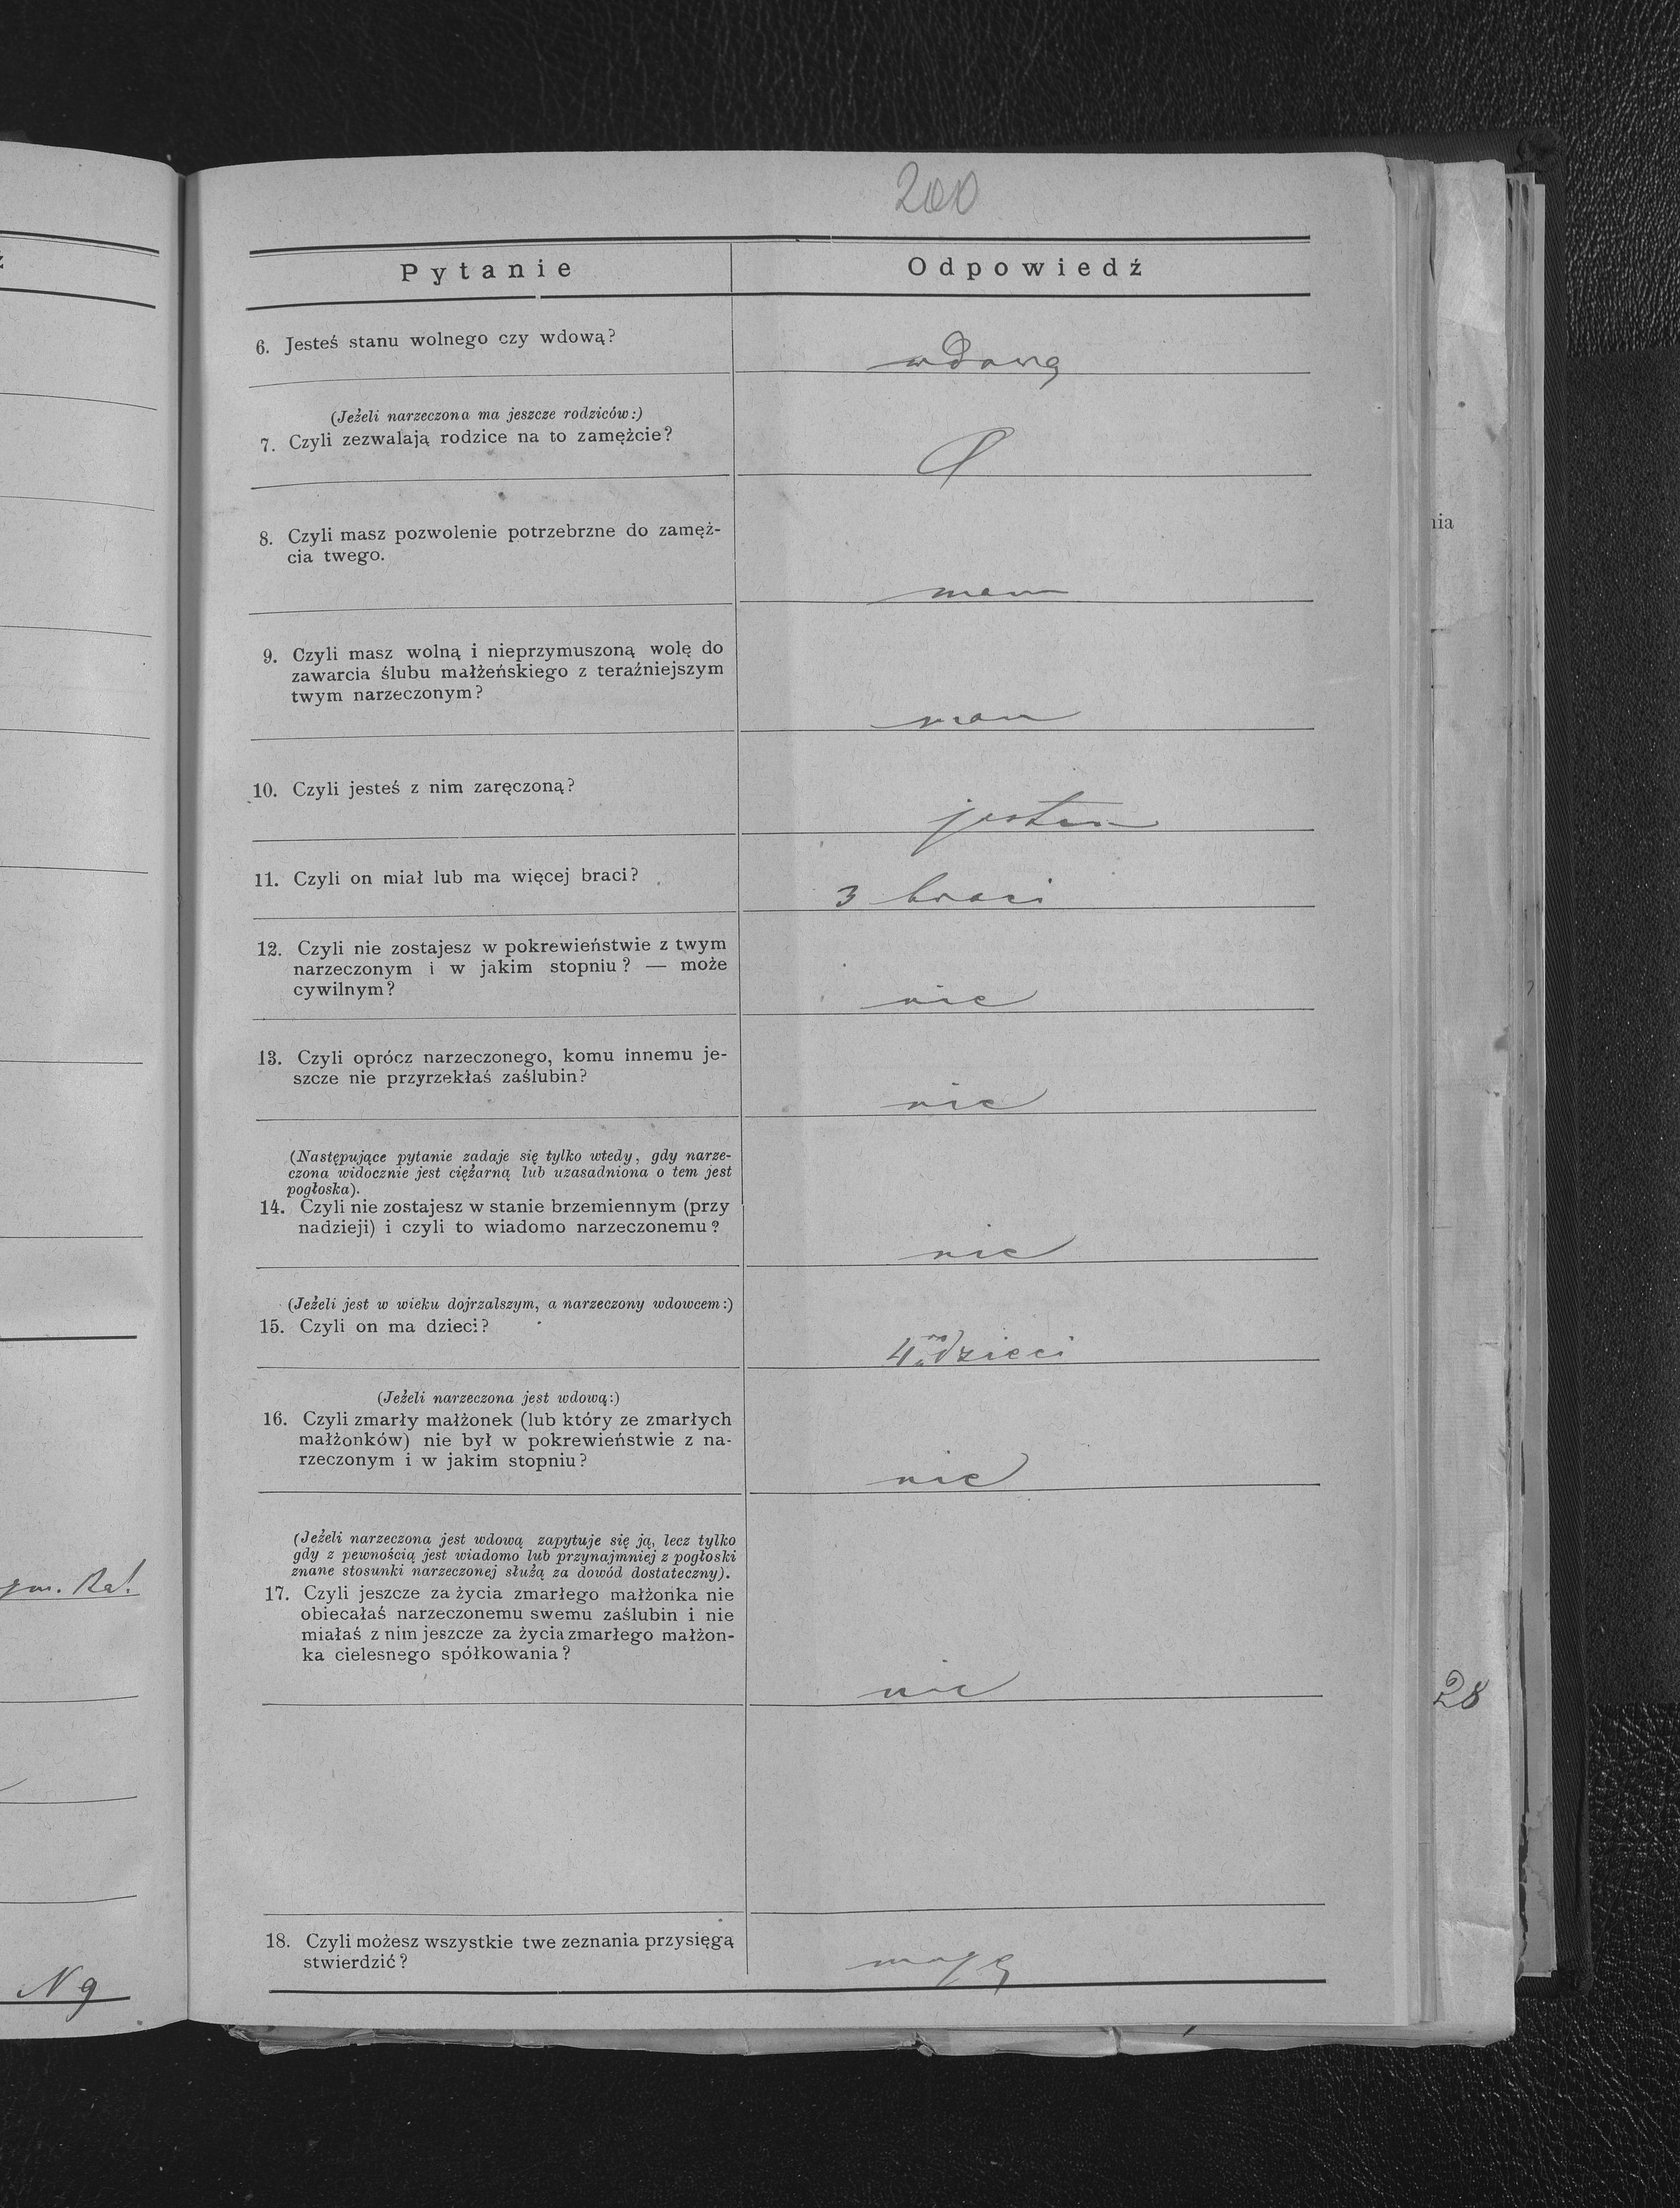 200
Pytanie
Odpowiedź
6. Jesteś stanu wolnego czy wdową?
wdową
(Jeżeli narzeczona ma jeszcze rodziców:)
7. Czyli zezwalają rodzice na to zamężcie?
8. Czyli masz pozwolenie potrzebrzne do zamęż-
cia twego.
mam
9. Czyli masz wolną i nieprzymuszoną wolę do
zawarcia ślubu małżeńskiego z teraźniejszym
twym narzeczonym?
mam
10. Czyli jesteś z nim zaręczoną?
jestem
11. Czyli on miał lub ma więcej braci?
3 braci
12. Czyli nie zostajesz w pokrewieństwie z twym
narzeczonym i w jakim stopniu? — może
cywilnym?
nie
13. Czyli oprócz narzeczonego, komu innemu je-
szcze nie przyrzekłaś zaślubin?
nie
(Następujące pytanie zadaje się tylko wtedy, gdy narze-
czona widocznie jest ciężarną lub uzasadniona o tem jest
pogłoska).
14. Czyli nie zostajesz w stanie brzemiennym (przy
nadzieji) i czyli to wiadomo narzeczonemu?
nie
(Jeżeli jest w wieku dojrzalszym, a narzeczony wdowcem:)
15. Czyli on ma dzieci?
4 dzieci
(Jeżeli narzeczona jest wdową:)
16. Czyli zmarły małżonek (lub który ze zmarłych
małżonków) nie był w pokrewieństwie z na-
rzeczonym i w jakim stopniu?
nie
(Jeżeli narzeczona jest wdową zapytuje się ją, lecz tylko
gdy z pewnością jest wiadomo lub przynajmniej z pogłoski
znane stosunki narzeczonej służą za dowód dostateczny).
17. Czyli jeszcze za życia zmarłego małżonka nie
obiecałaś narzeczonemu swemu zaślubin i nie
miałaś z nim jeszcze za życia zmarłego małżon-
ka cielesnego spółkowania?
nie
18. Czyli możesz wszystkie twe zeznania przysięgą
stwierdzić?
mogę
nia
28
N 9